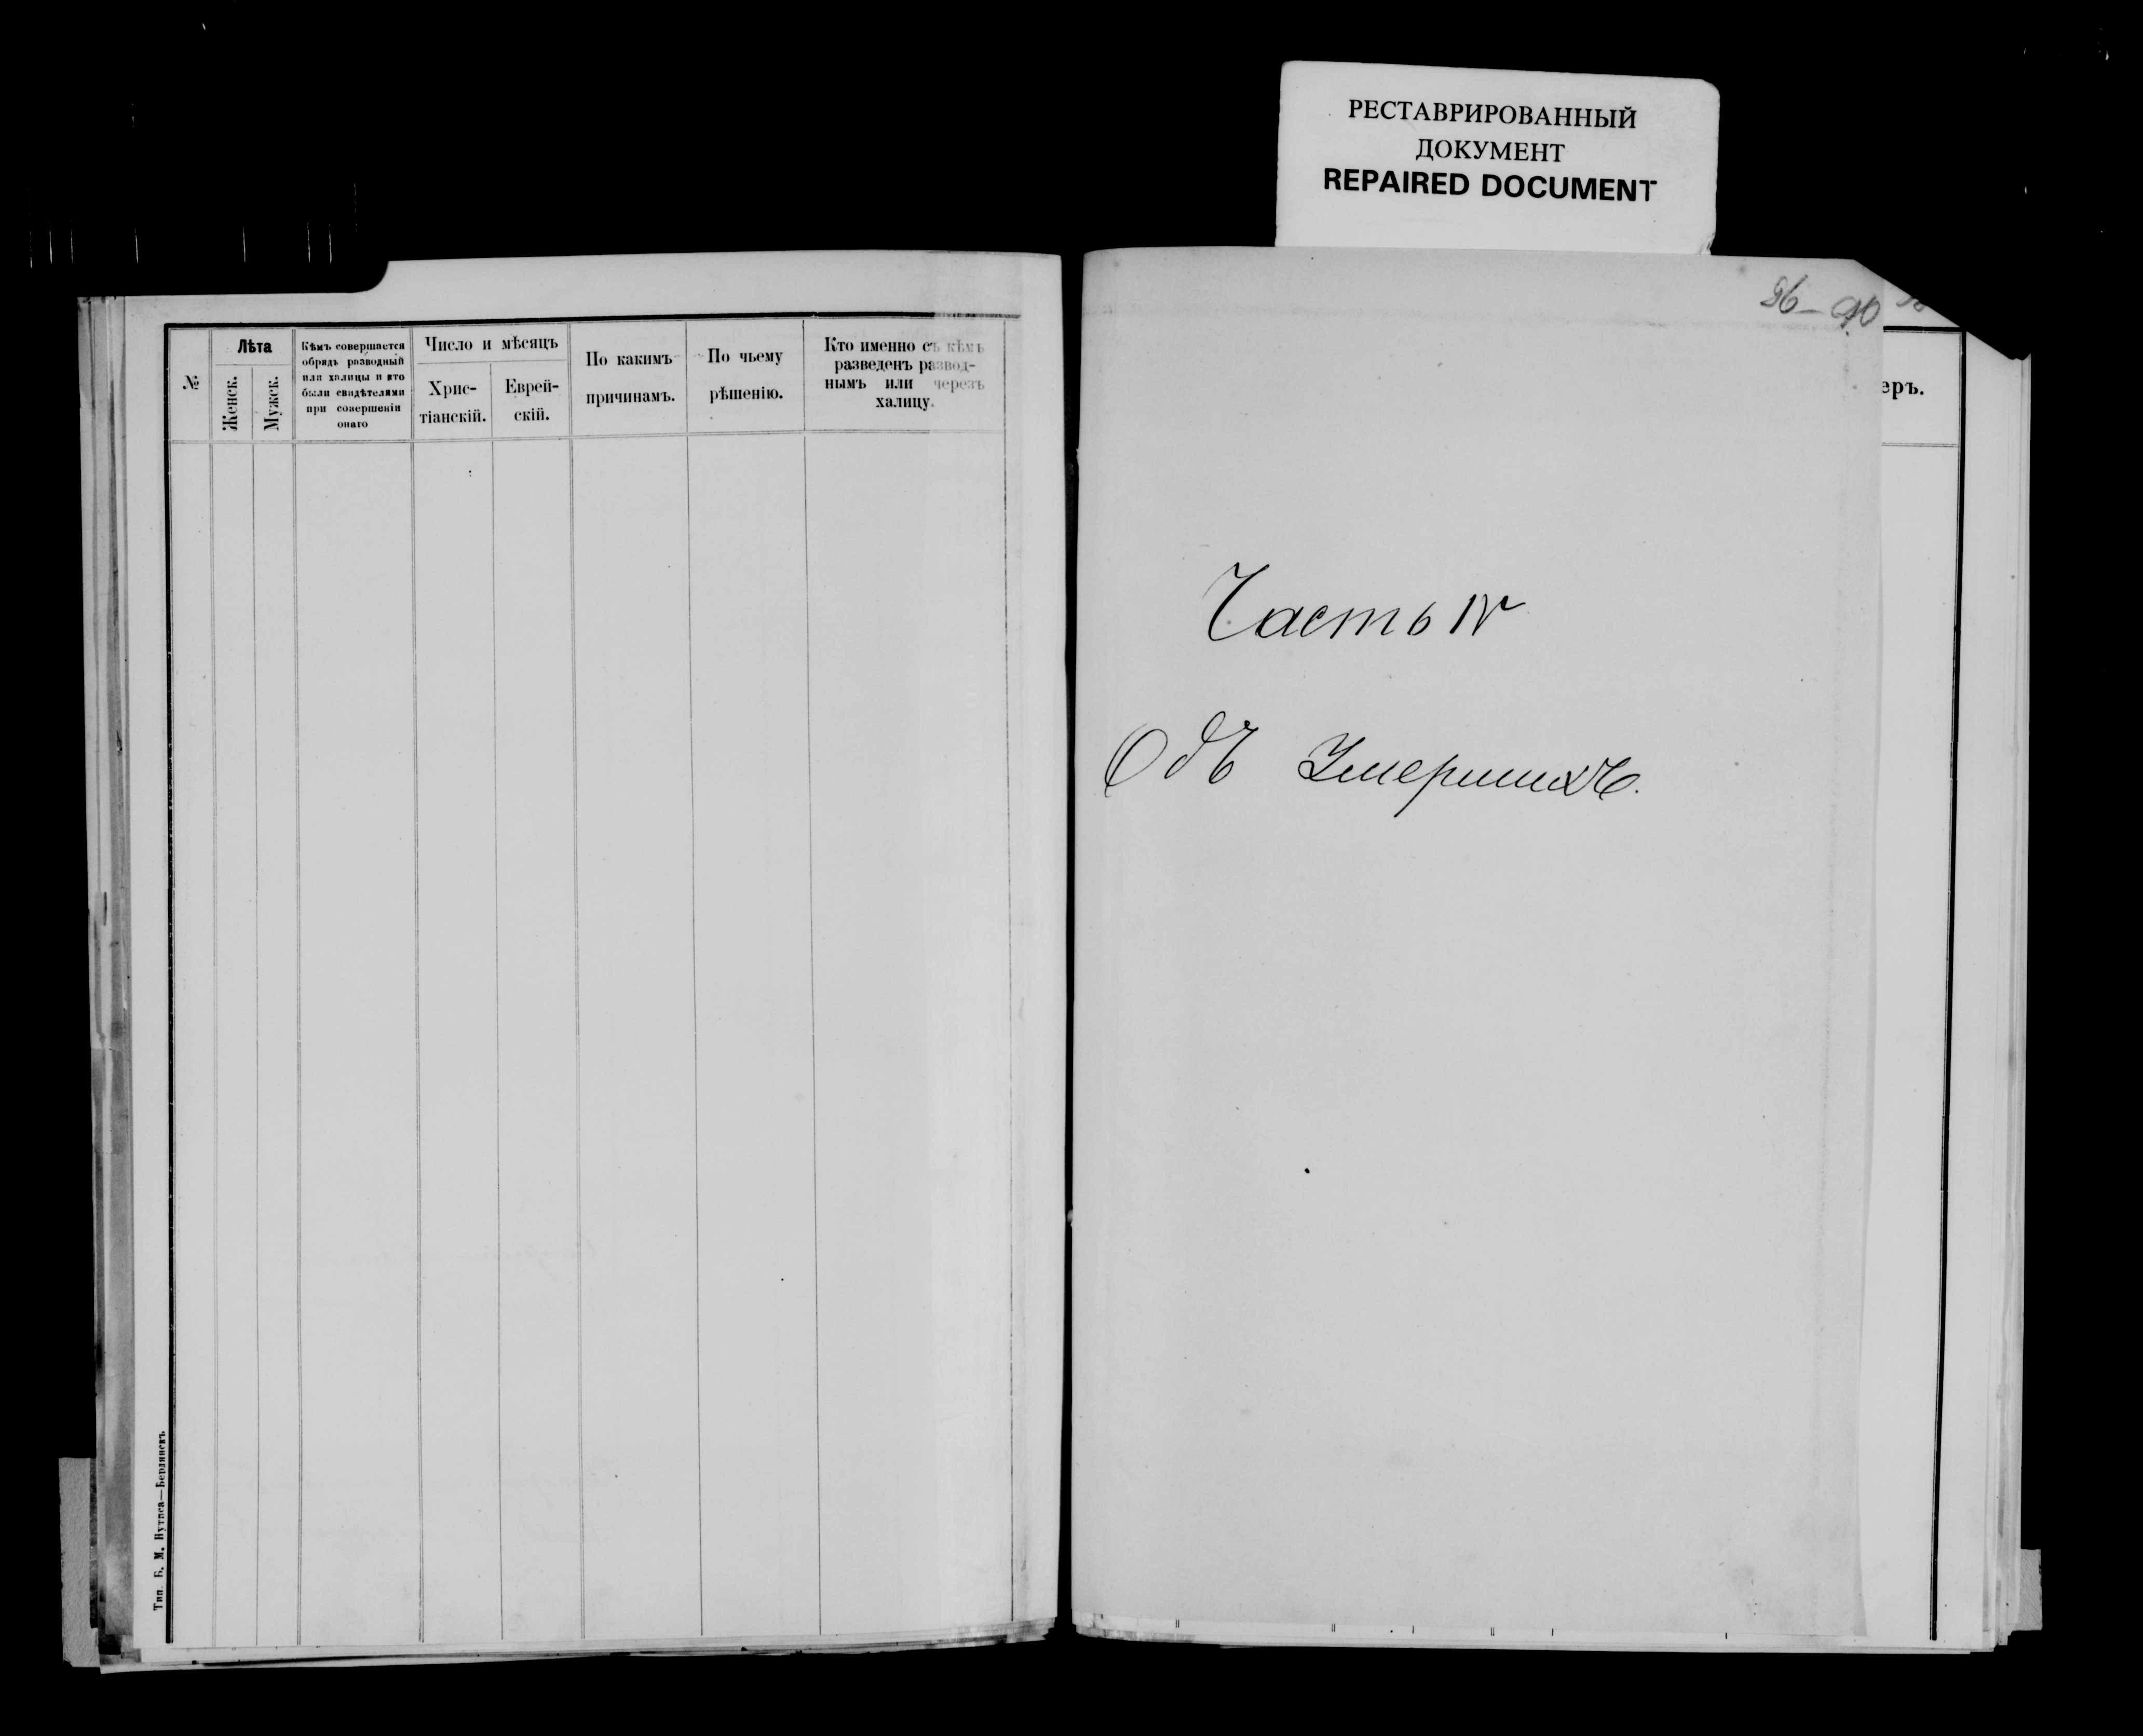 РЕСТАВРИРОВАННЫЙ
ДОКУМЕНТ
REPAIRED DOCUMENT
№
Лѣта
Женск.
Мужск.
Кѣмъ совершается
обрядъ разводный
или халицы и кто
были свидѣтелями
при совершеніи
онаго
Число и мѣсяцъ
Хрис-
тіанскій.
Еврей-
скій.
По какимъ
причинамъ.
По чьему
рѣшенію.
Кто именно съ кѣмъ
разведенъ развод-
нымъ или черезъ
халицу.
Тип. Б. М. —Бердянскъ
еръ.
Часть IV
Объ Умершихъ.